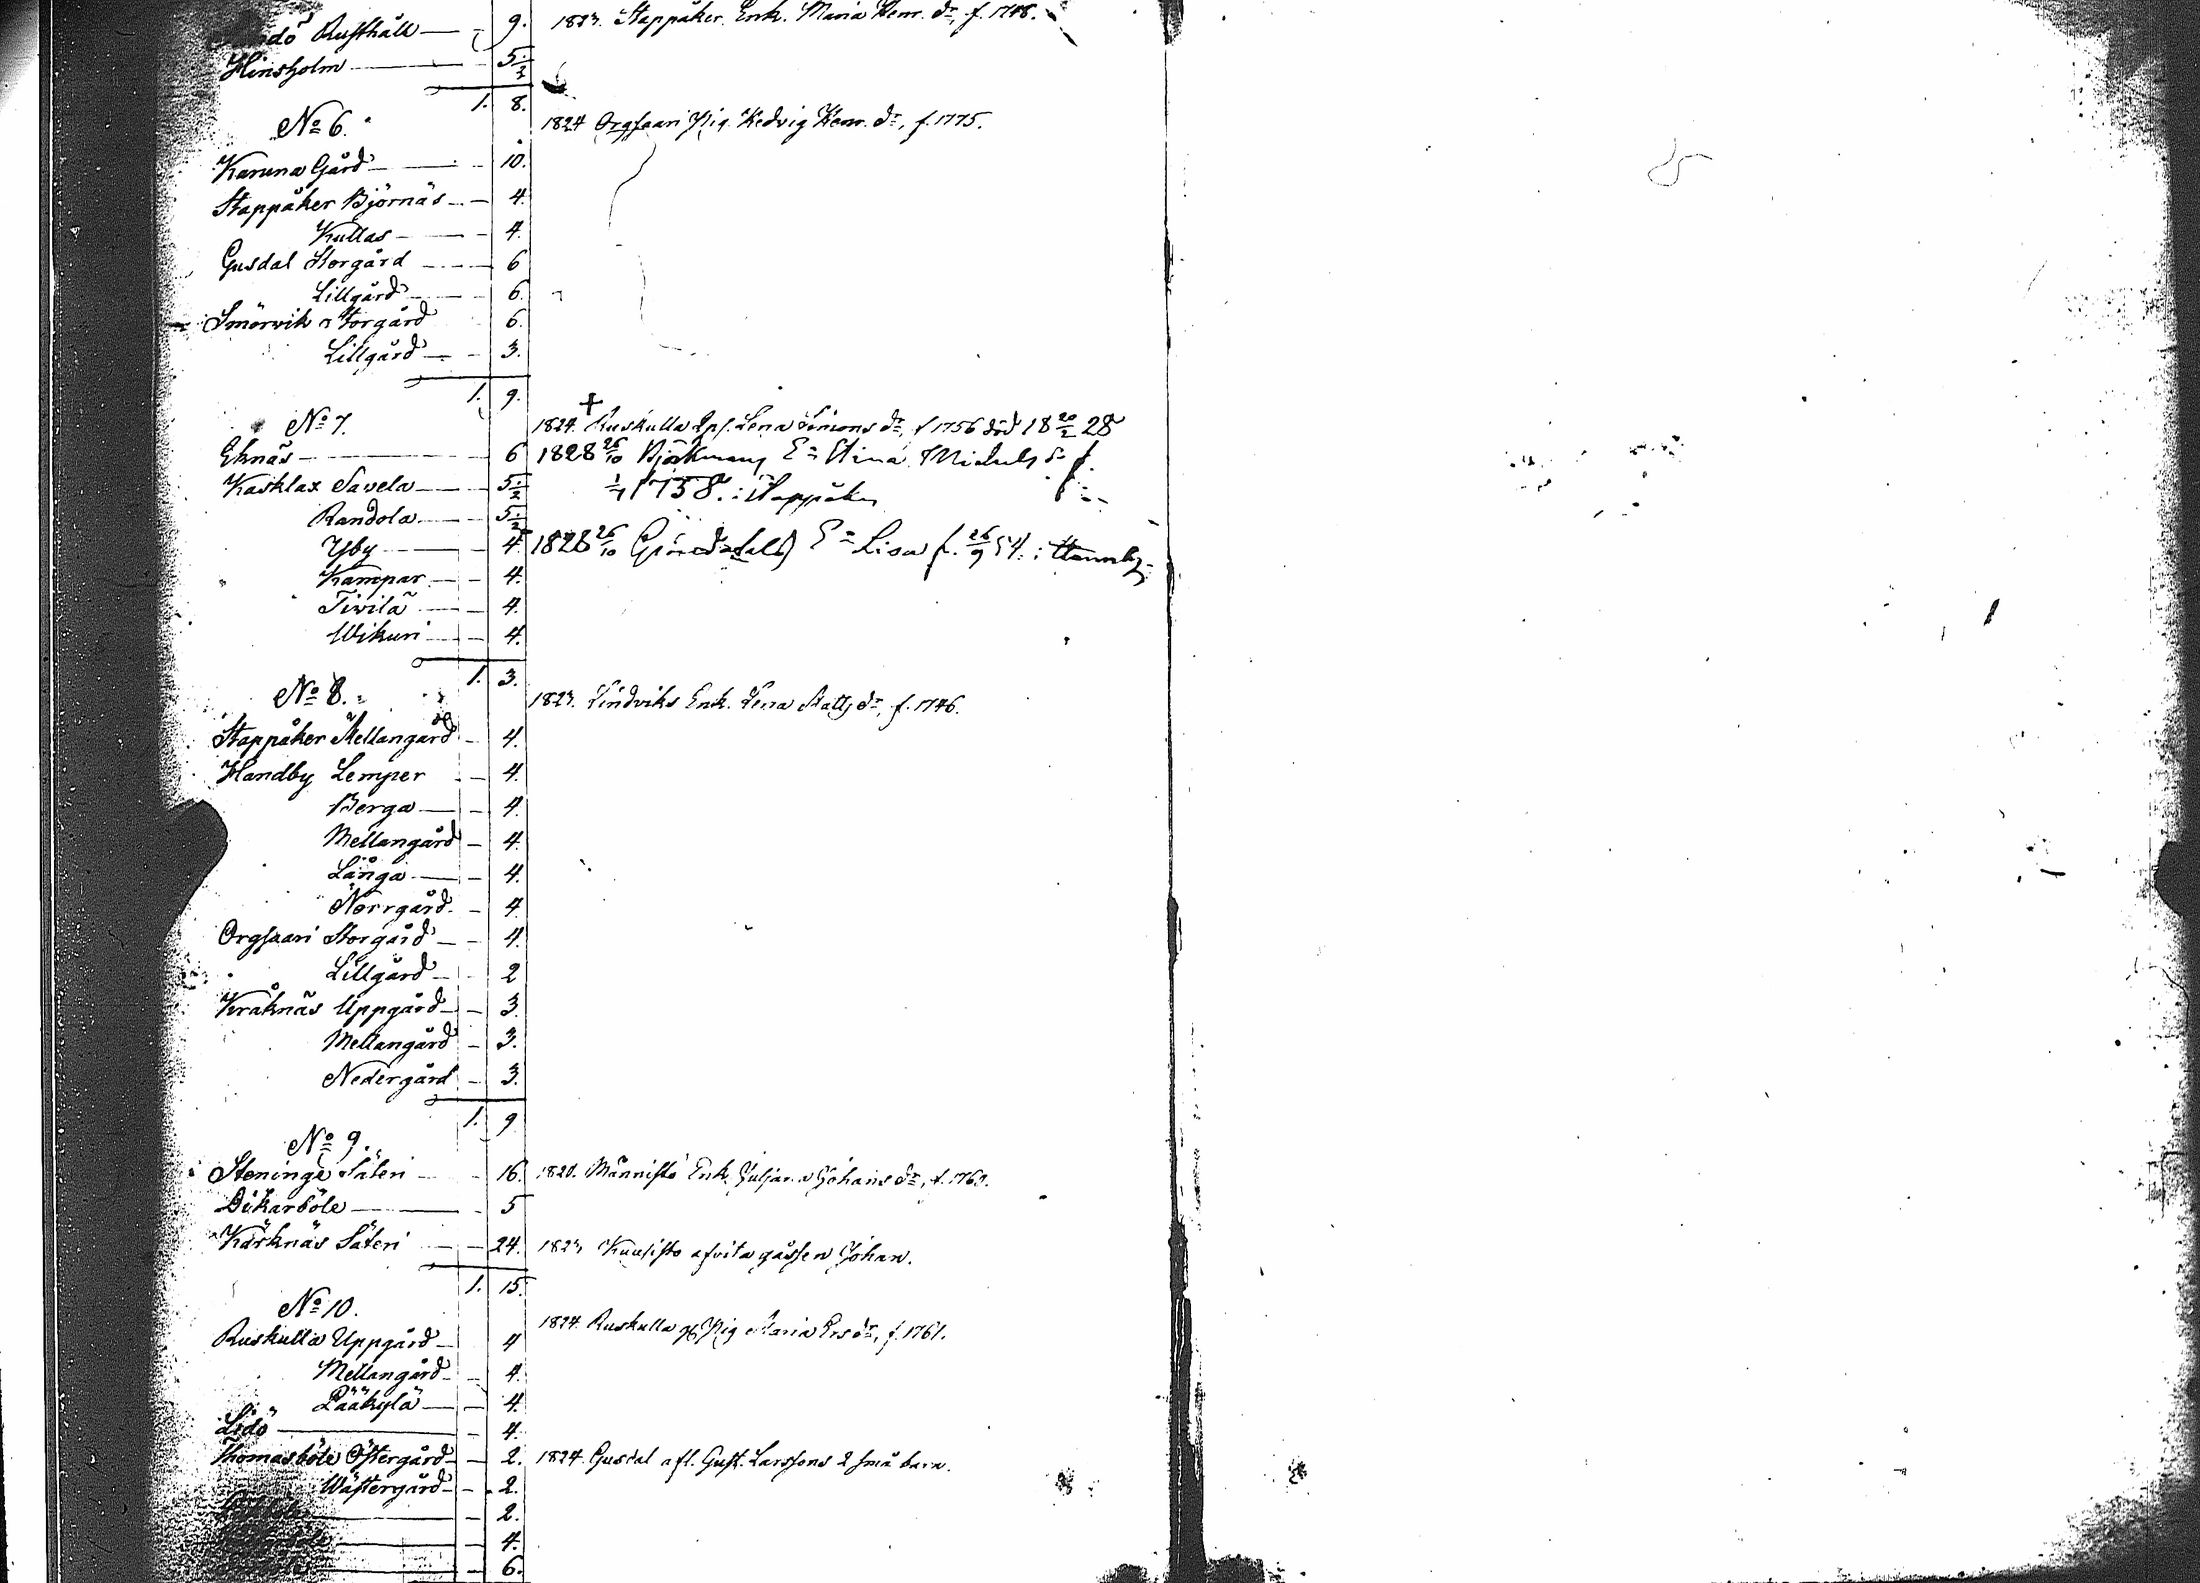 dö Rusthåll — 9. 1823. Stappåker Enk. Maria Henr. dr, f. 1748.
Hinsholm — 5 1/2
1. 8.
No 6. 1824 Orgsaari Pig. Hedvig Henr. dr, f. 1775.
Karuna Gård — 10.
Stappåker Björnäs — 4
Kullas — 4.
Gusdal Storgård — 6
Lillgård — 6.
Smörvik Storgård 6.
Lillgård — 3.
1. 9.
No 7. 1824. Ruskulla Lena Simons dr, f 1756 död 18 20/2 28
Eknäs — 6 1828 26/10 E= Stina f.
Kasklax Savela — 5 1/2 1758. i Stappåker
Randola — 5 1/2
Yby — 4 1828 26/10 E= Lisa f. 26/9 54. i
Kampar — 4.
Tivilä — 4.
Wikuri — 4.
1. 3.
No 8. 1823. Lindviks Enk. Lena Matts dr, f. 1746.
Stappåker Mellangård — 4.
Handby Lemper — 4.
Berga — 4.
Mellangård — 4.
Långa — 4.
Norrgård — 4
Orgsaari Storgård — 4.
Lillgård — 2
Kråknäs Uppgård — 3.
Mellangård — 3.
Nedergård — 3.
1. 9
No 9.
Steninge Säteri — 16. 1820. Männistö Enk. Johans dr, f. 1763.
Dikarböle — 5
Kärknäs Säteri — 24. 1823 Kuusisto afvita gåssen Johan.
1. 15.
No 10. 1824. Ruskulla Pig Maria Ers dr, f. 1761.
Ruskulla Uppgård — 4
Mellangård — 4.
Pääkylä — 4.
Lidö — 4.
Thomasböle Östergård — 2. 1824 Gusdal afl. Gust. Larssons 2 små barn.
Wästergård — 2.
2.
4.
6.